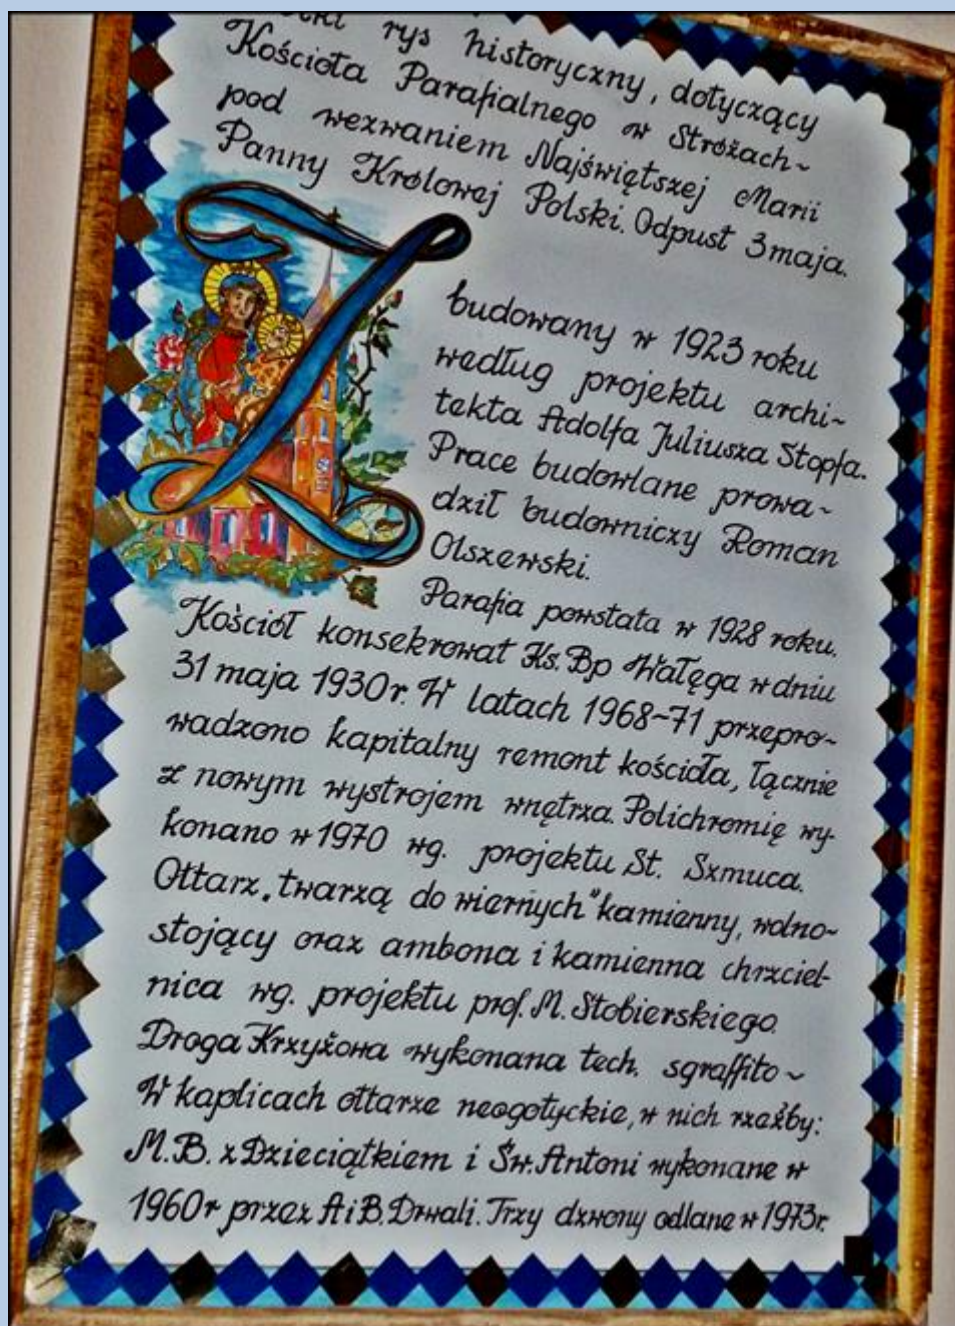 rys historyczny, dotyczący
Kościoła Parafialnego w Stróżach~
pod wezwaniem Najświętszej Marii
Panny Królowej Polski. Odpust 3 maja.
Zbudowany w 1923 roku
według projektu archi~
tekta Adolfa Juliusza Stopfa.
Prace budowlane prowa~
dził budowniczy Roman
Olszewski.
Parafia powstała w 1928 roku.
Kościół konsekrował Ks. Bp Wałęga w dniu
31 maja 1930r. W latach 1968~71 przepro~
wadzono kapitalny remont kościoła, łącznie
z nowym wystrojem wnętrza. Polichromię wy-
konano w 1970 wg. projektu St. Szmuca.
Ołtarz „twarzą do wiernych" kamienny, wolno~
stojący oraz ambona i kamienna chrzciel-
nica wg. projektu prof. M. Stobierskiego.
Droga Krzyżowa wykonana tech. sgraffito~
W kaplicach ołtarze neogotyckie, w nich rzeźby:
M.B. z Dzieciątkiem i Św. Antoni wykonane w
1960r przez A i B. Drwali. Trzy dzwony odlane w 1973r.